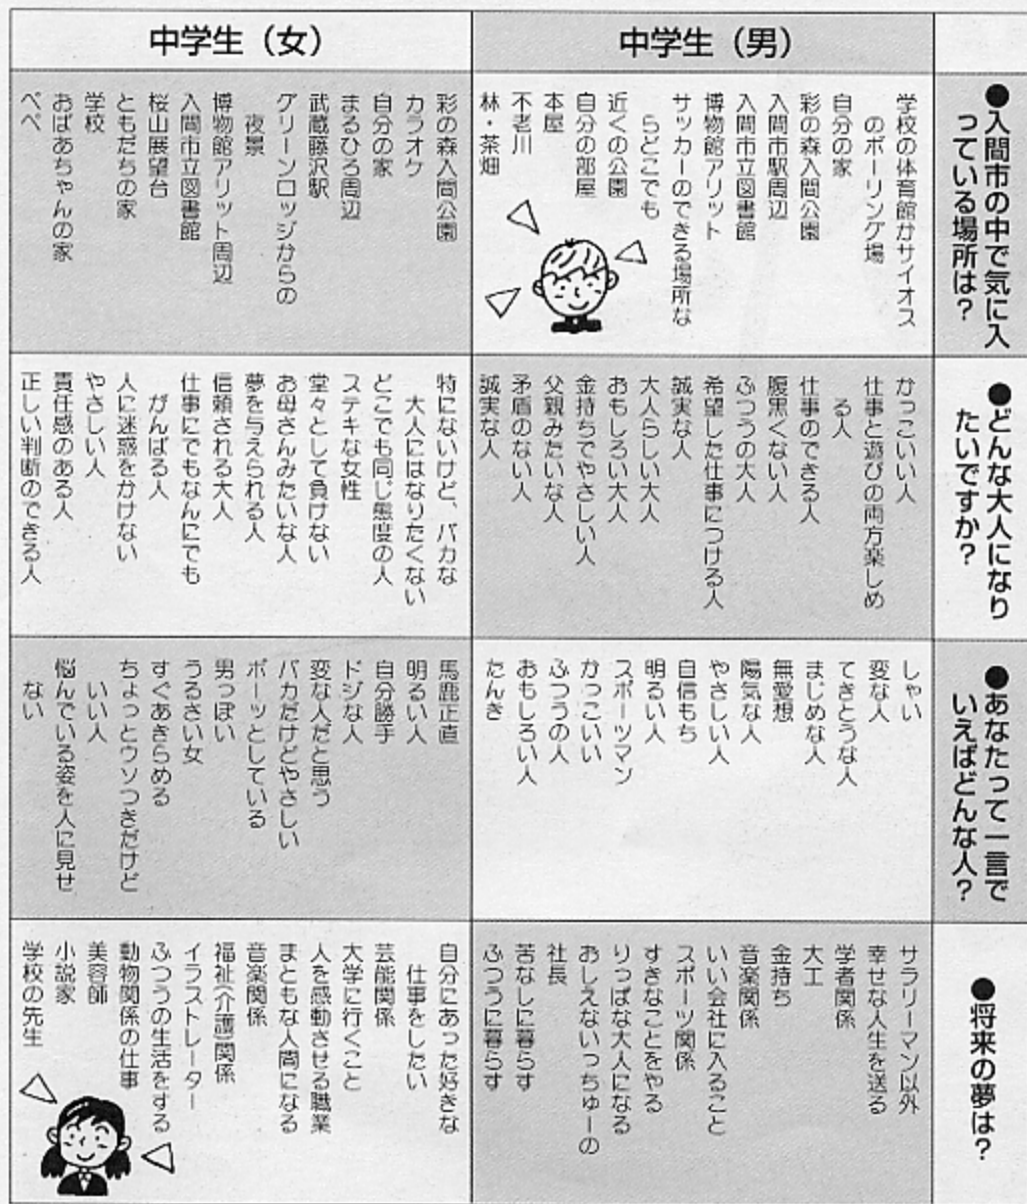 中学生（男）
中学生（女）
●入間市の中で気に入
っている場所は？
学校の体育館かサイオス
のボーリング場
自分の家
彩の森入間公園
入間市駅周辺
入間市立図書館
博物館アリット
サッカーのできる場所な
らどこでも
近くの公園
自分の部屋
本屋
不老川
林・茶畑
彩の森入間公園
カラオケ
自分の家
まるひろ周辺
武蔵藤沢駅
グリーンロッジからの
夜景
博物館アリット周辺
入間市立図書館
桜山展望台
ともだちの家
学校
おばあちゃんの家
ペペ
●どんな大人になり
たいですか？
かっこいい人
仕事と遊びの両方楽しめ
る人
仕事のできる人
腹黒くない人
ふつうの大人
希望した仕事につける人
誠実な人
大人らしい大人
おもしろい大人
金持ちでやさしい人
父親みたいな人
矛盾のない人
誠実な人
特にないけど、バカな
大人にはなりたくない
どこでも同じ態度の人
ステキな女性
堂々として負けない
お母さんみたいな人
夢を与えられる人
信頼される大人
仕事にでもなんにでも
がんばる人
人に迷惑をかけない
やさしい人
責任感のある人
正しい判断のできる人
●あなたって一言で
いえばどんな人？
しゃい
変な人
てきとうな人
まじめな人
無愛想
陽気な人
やさしい人
自信もち
明るい人
スポーツマン
かっこいい
ふつうの人
おもしろい人
たんき
馬鹿正直
明るい人
自分勝手
ドジな人
変な人だと思う
バカだけどやさしい
ボーッとしている
男っぽい
うるさい女
すぐあきらめる
ちょっとウソつきだけど
いい人
悩んでいる姿を人に見せ
ない
●将来の夢は？
サラリーマン以外
幸せな人生を送る
学者関係
大工
金持ち
音楽関係
いい会社に入ること
スポーツ関係
すきなことをやる
りっぱな大人になる
おしえないっちゅーの
社長
苦なしに暮らす
ふつうに暮らす
自分にあった好きな
仕事をしたい
芸能関係
大学に行くこと
人を感動させる職業
まともな人間になる
音楽関係
福祉(介護)関係
イラストレーター
ふつうの生活をする
動物関係の仕事
美容師
小説家
学校の先生